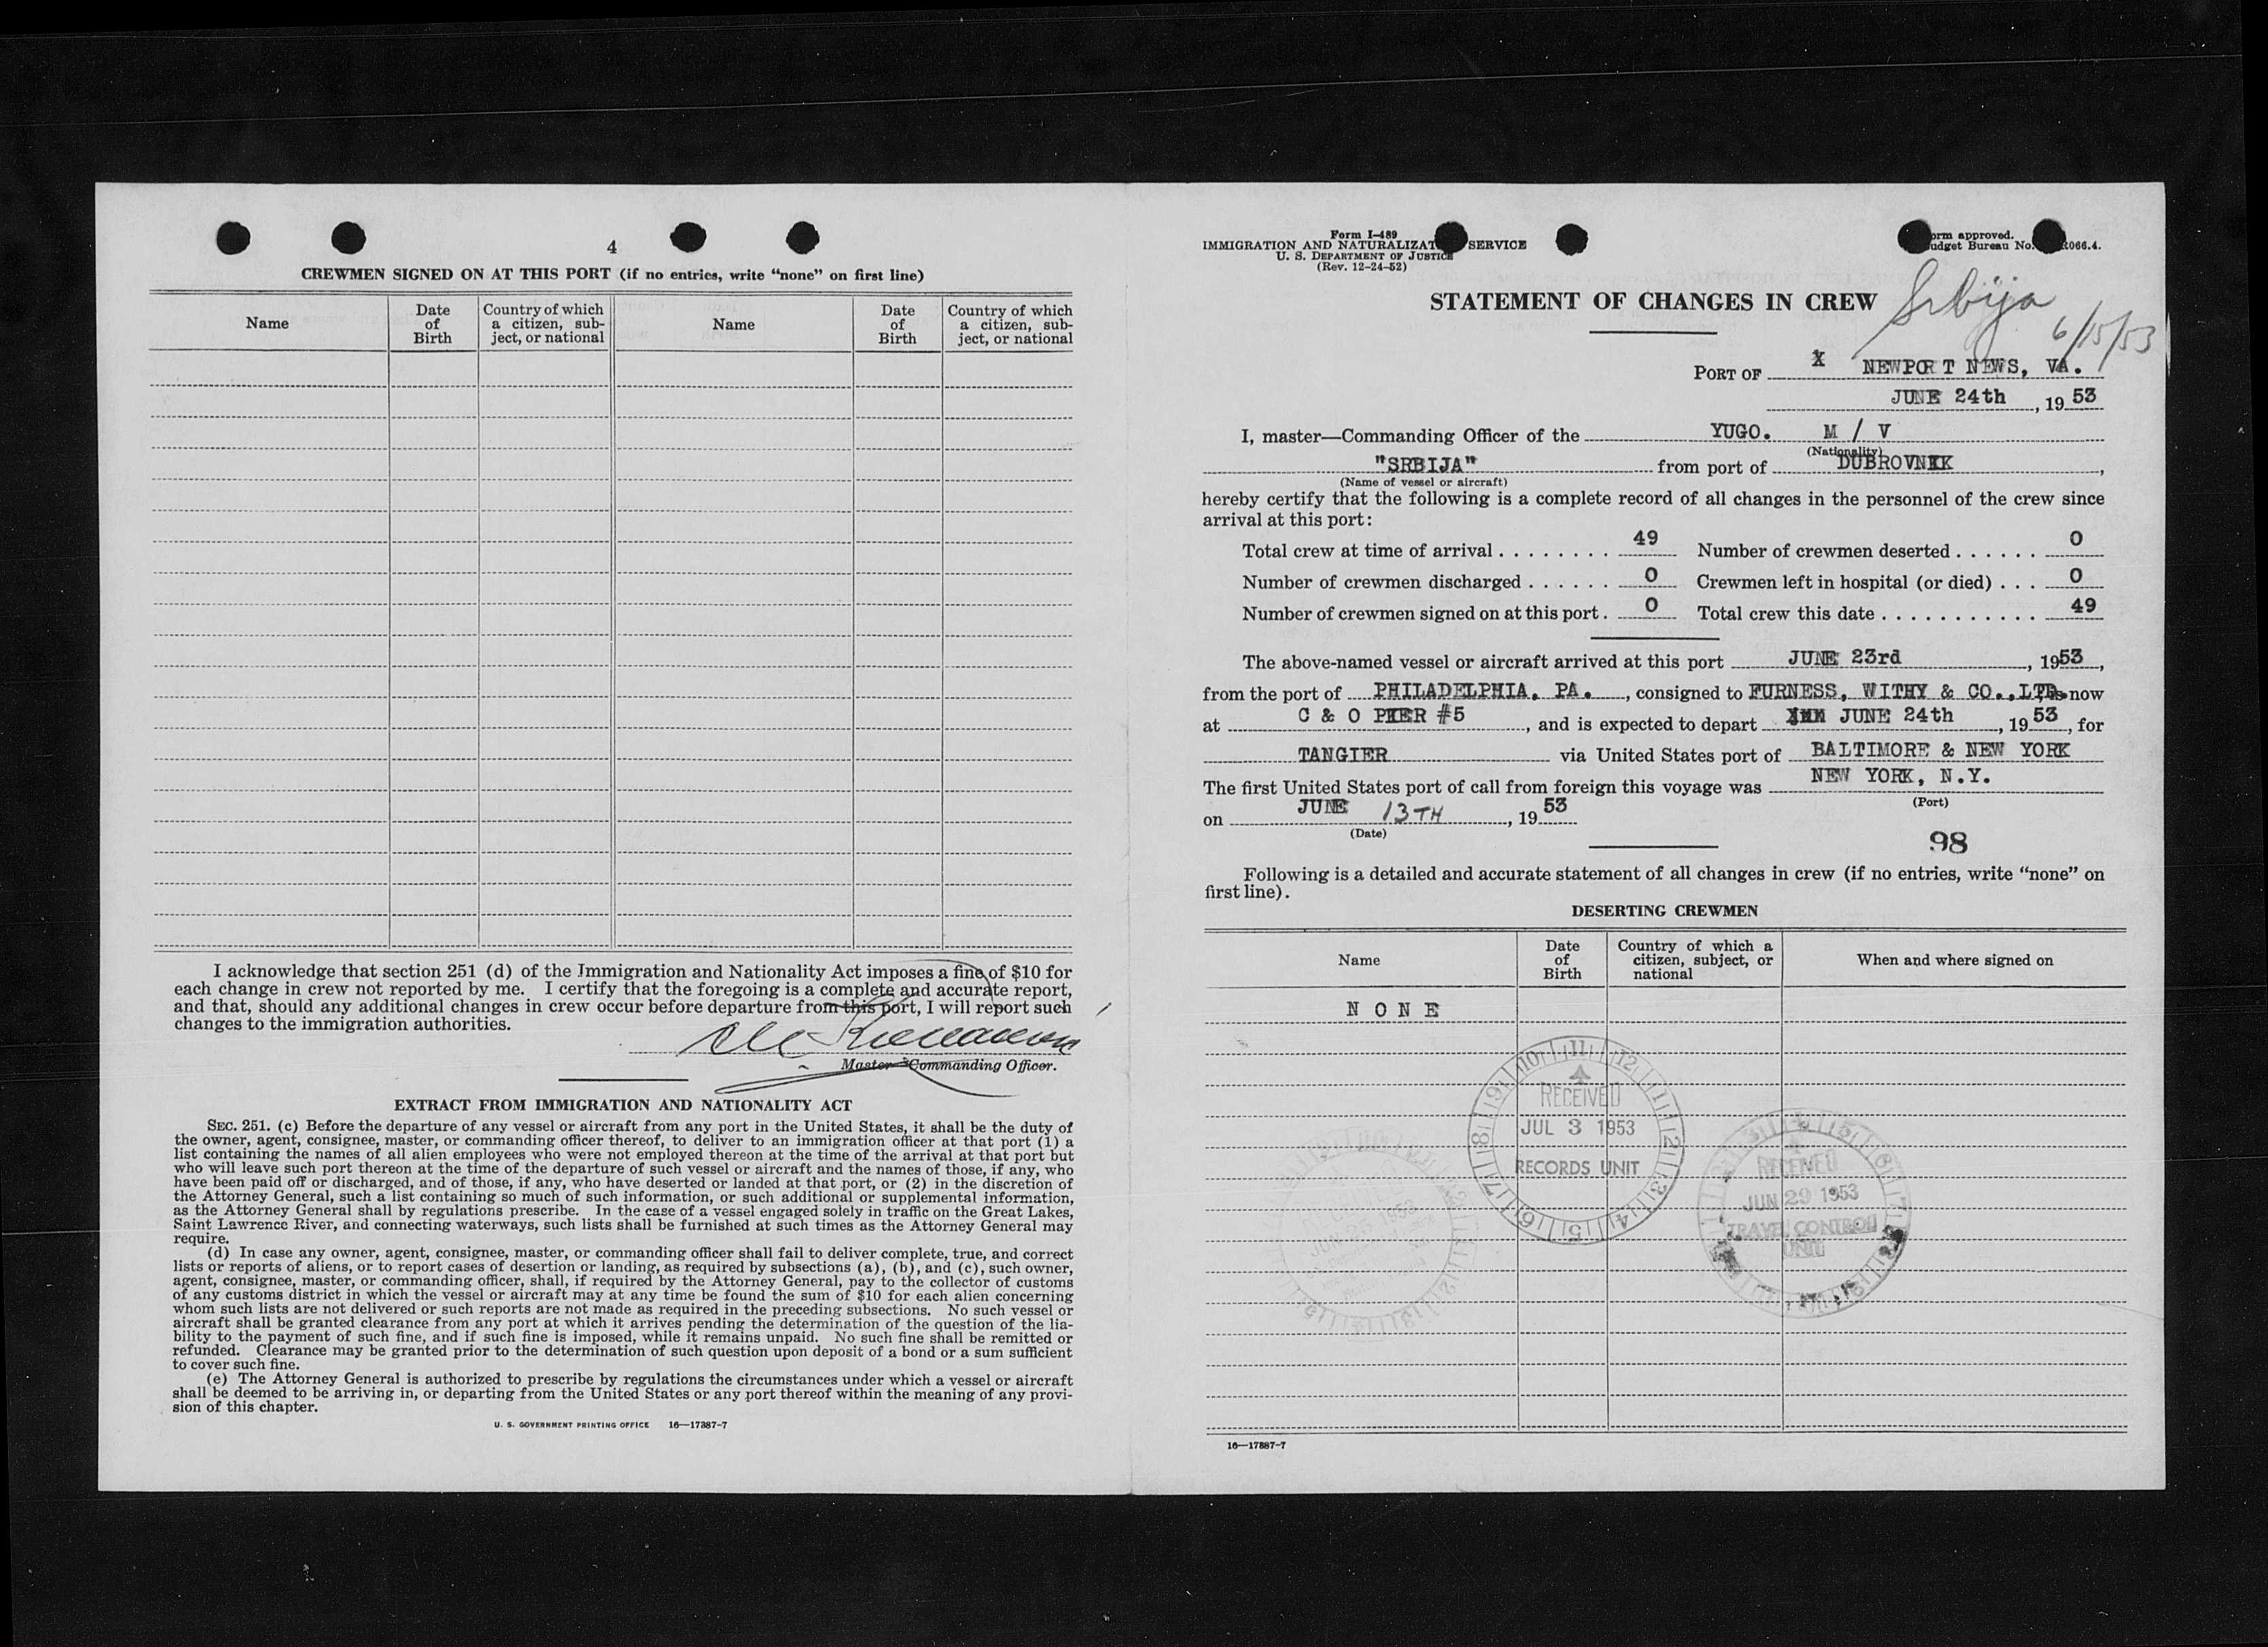 4
CREWMEN SIGNED ON AT THIS PORT (if no entries, write “none” on first line)
Name
Date of Birth
Country of which a citizen, sub-ject, or national
Name
Date of Birth
Country of which a citizen, sub-ject, or national
I acknowledge that section 251 (d) of the Immigration and Nationality Act imposes a fine of $10 for
each change in crew not reported by me. I certify that the foregoing is a complete and accurate report,
and that, should any additional changes in crew occur before departure from this port, I will report such
changes to the immigration authorities.
Master—Commanding Officer.
EXTRACT FROM IMMIGRATION AND NATIONALITY ACT
SEC. 251. (c) Before the departure of any vessel or aircraft from any port in the United States, it shall be the duty of
the owner, agent, consignee, master, or commanding officer thereof, to deliver to an immigration officer at that port (1) a
list containing the names of all alien employees who were not employed thereon at the time of the arrival at that port but
who will leave such port thereon at the time of the departure of such vessel or aircraft and the names of those, if any, who
have been paid off or discharged, and of those, if any, who have deserted or landed at that port, or (2) in the discretion of
the Attorney General, such a list containing so much of such information, or such additional or supplemental information,
as the Attorney General shall by regulations prescribe. In the case of a vessel engaged solely in traffic on the Great Lakes,
Saint Lawrence River, and connecting waterways, such lists shall be furnished at such times as the Attorney General may
require.
(d) In case any owner, agent, consignee, master, or commanding officer shall fail to deliver complete, true, and correct
lists or reports of aliens, or to report cases of desertion or landing, as required by subsections (a), (b), and (c), such owner,
agent, consignee, master, or commanding officer, shall, if required by the Attorney General, pay to the collector of customs
of any customs district in which the vessel or aircraft may at any time be found the sum of $10 for each alien concerning
whom such lists are not delivered or such reports are not made as required in the preceding subsections. No such vessel or
aircraft shall be granted clearance from any port at which it arrives pending the determination of the question of the lia-
bility to the payment of such fine, and if such fine is imposed, while it remains unpaid. No such fine shall be remitted or
refunded. Clearance may be granted prior to the determination of such question upon deposit of a bond or a sum sufficient
to cover such fine.
(e) The Attorney General is authorized to prescribe by regulations the circumstances under which a vessel or aircraft
shall be deemed to be arriving in, or departing from the United States or any port thereof within the meaning of any provi-
sion of this chapter.
U. S. GOVERNMENT PRINTING OFFICE 16—17387-7
Form I-489
IMMIGRATION AND NATURALIZAT SERVICE
U. S. DEPARTMENT OF JUSTICE
(Rev. 12-24-52)
orm approved.
udget Bureau No. 066.4.
STATEMENT OF CHANGES IN CREW
Srbija
6/15/53
PORT OF X NEWPORT NEWS, VA.
JUNE 24th, 19 53
I, master—Commanding Officer of the YUGO. M / V
(Nationality)
"SRBIJA" from port of DUBROVNIK,
(Name of vessel or aircraft)
hereby certify that the following is a complete record of all changes in the personnel of the crew since
arrival at this port:
Total crew at time of arrival . . . . . . . . 49 Number of crewmen deserted . . . . . . 0
Number of crewmen discharged . . . . . . 0 Crewmen left in hospital (or died) . . . 0
Number of crewmen signed on at this port . 0 Total crew this date . . . . . . . . . . . 49
The above-named vessel or aircraft arrived at this port JUNE 23rd, 1953,
from the port of PHILADELPHIA, PA., consigned to FURNESS, WITHY & CO., LTD. now
at C & O PIER #5, and is expected to depart JUNE 24th, 19 53, for
TANGIER via United States port of BALTIMORE & NEW YORK
The first United States port of call from foreign this voyage was NEW YORK, N.Y.
(Port)
on JUNE 13TH, 19 53
(Date)
98
Following is a detailed and accurate statement of all changes in crew (if no entries, write “none” on
first line).
DESERTING CREWMEN
Name
Date of Birth
Country of which a citizen, subject, or national
When and where signed on
N O N E
RECEIVED
JUL 3 1953
RECORDS UNIT
RECEIVED
JUN 29 1953
TRAVEL CONTROL
UNIT
JUN 25 1953
16—17387-7